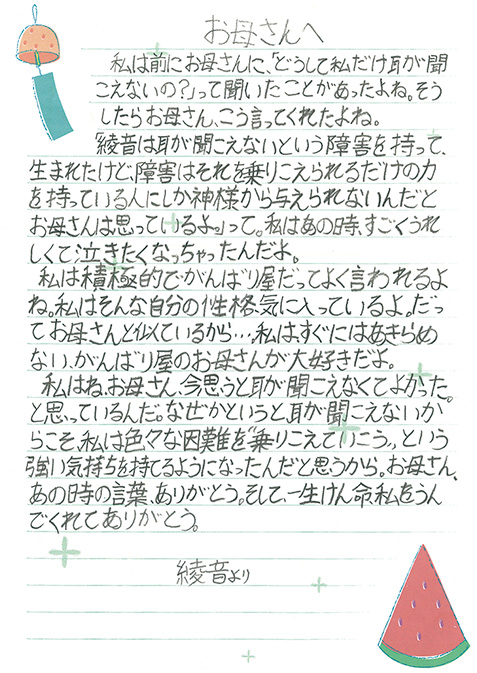 お母さんへ
私は前にお母さんに、「どうして私だけ耳が聞
こえないの？」って聞いたことがあったよね。そう
したらお母さん、こう言ってくれたよね。
「綾音は耳が聞こえないという障害を持って、
生まれたけど、障害はそれを乗りこえられるだけの力
を持っている人にしか神様から与えられないんだと
お母さんは思っているよ。」って。私はあの時、すごくうれ
しくて泣きたくなっちゃったんだよ。
私は積極的でがんばり屋だってよく言われるよ
ね。私はそんな自分の性格、気に入っているよ。だっ
てお母さんと似ているから…。私は、すぐにはあきらめ
ない、がんばり屋のお母さんが大好きだよ。
私はね、お母さん、今思うと耳が聞こえなくてよかった。
と思っているんだ。なぜかというと、耳が聞こえないか
らこそ、私は色々な困難を“乗りこえていこう”という
強い気持ちを持てるようになったんだと思うから。お母さん、
あの時の言葉、ありがとう。そして、一生けん命私をうん
でくれてありがとう。
綾音より